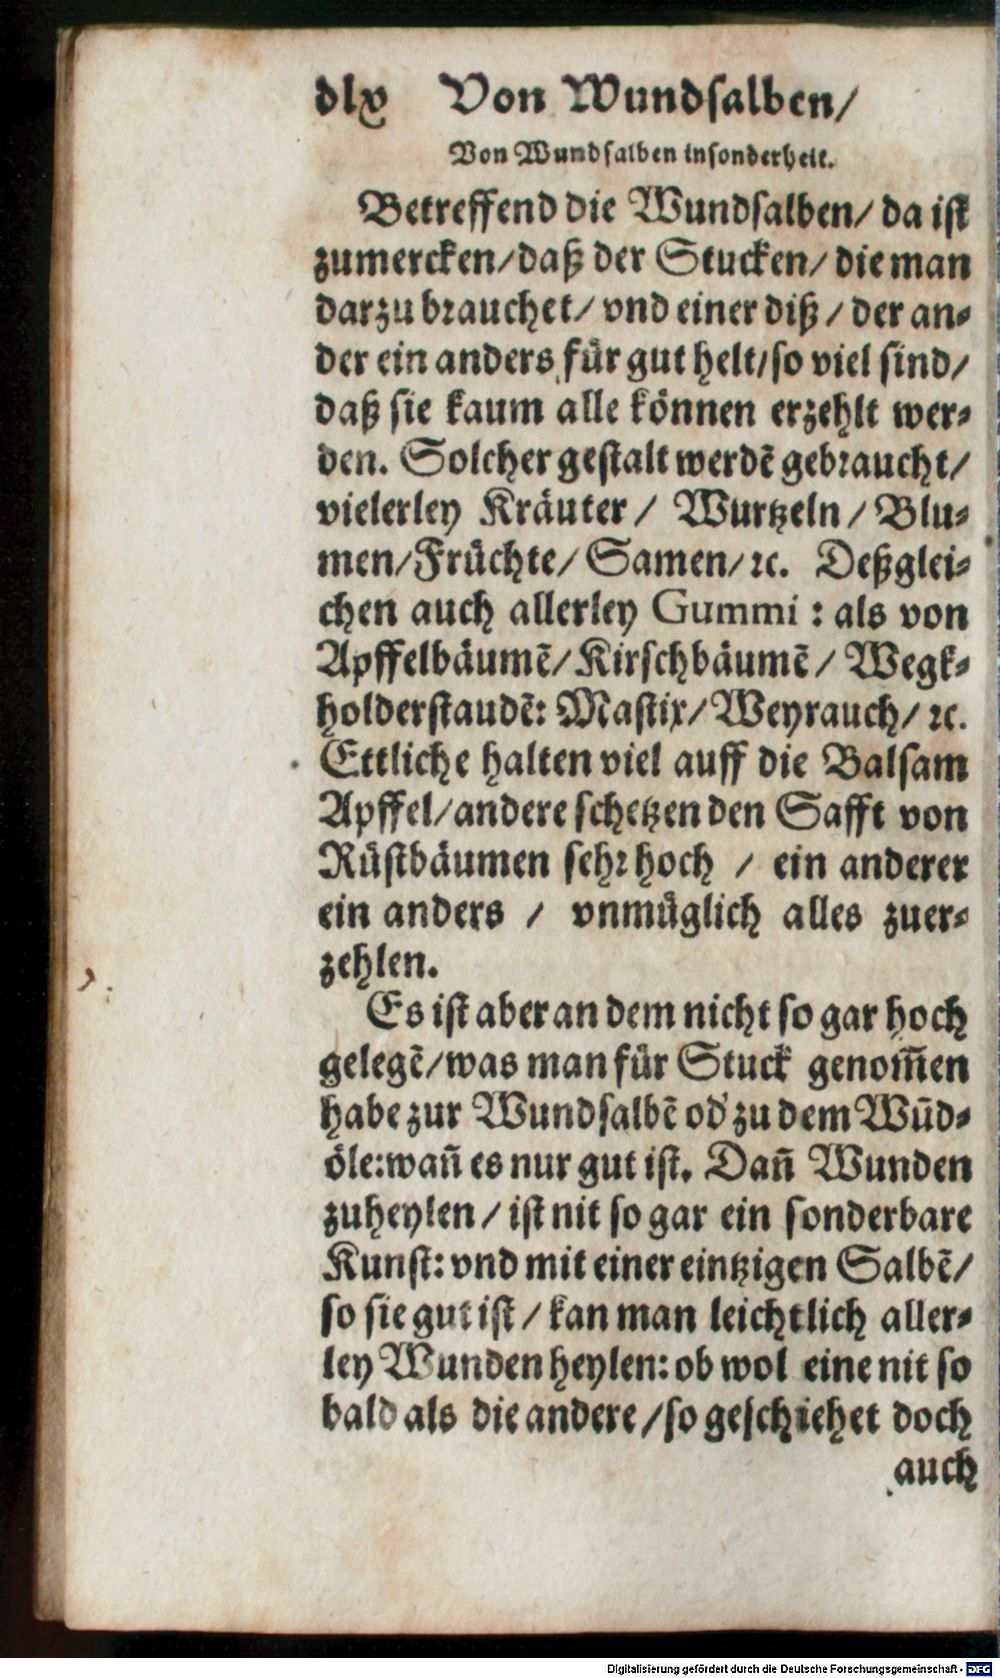 dlx Von Wundsalben/
Von Wundsalben insonderheit.
Betreffend die Wundsalben/ da ist
zumercken/daß der Stucken/ die man
darzu brauchet/ vnd einer diß/ der an⸗
der ein anders für gut helt/so viel sind/
daß sie kaum alle können erzehlt wer⸗
den. Solcher gestalt werdẽ gebraucht/
vielerley Kräuter/ Wurtzeln/ Blu⸗
men/Früchte/ Samen/ ꝛc. Deßglei⸗
chen auch allerley Gummi: als von
Apffelbäumẽ/Kirschbäumẽ/ Wegk⸗
holderstaudẽ: Mastix/Weyrauch/ ꝛc.
Ettliche halten viel auff die Balsam
Apffel/andere schetzen den Safft von
Rüstbäumen sehr hoch / ein anderer
ein anders / vnmüglich alles zuer⸗
zehlen.
Es ist aber an dem nicht so gar hoch
gelegẽ/was man für Stuck genom̃en
habe zur Wundsalbẽ od' zu dem Wũd⸗
öle:wañ es nur gut ist. Dañ Wunden
zuheylen/ ist nit so gar ein sonderbare
Kunst: vnd mit einer eintzigen Salbẽ/
so sie gut ist/ kan man leichtlich aller⸗
ley Wunden heylen: ob wol eine nit so
bald als die andere/so geschiehet doch
auch
Digitalisierung gefördert durch die Deutsche Forschungsgemeinschaft - DFG